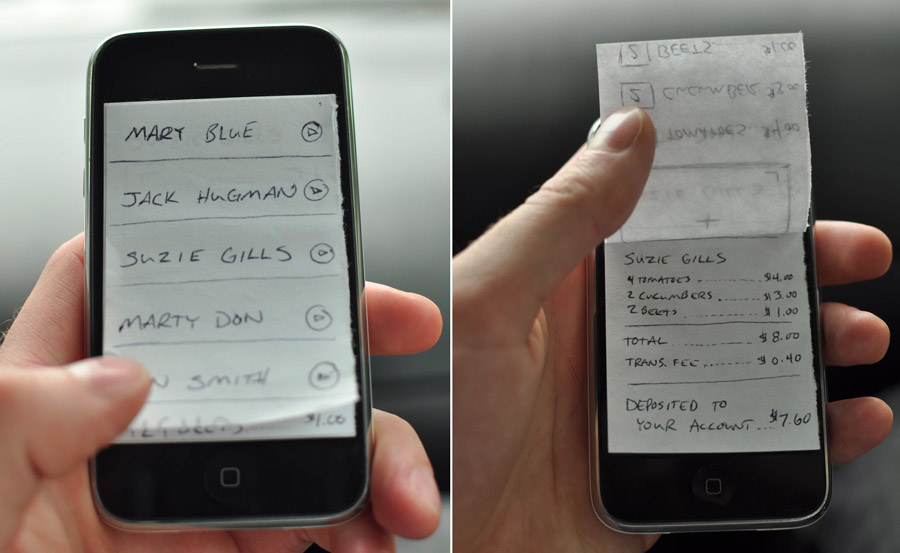 MARY BLUE
JACK HUGMAN
SUZIE GILLS
MARTY DON
SMITH
$1.00
2 BEETS $1.00
2 CUCUMBER $3.00
TOMATOES $4.00
SUZIE GILLS
+
SUZIE GILLS
4 TOMATOES ........ $4.00
2 CUCUMBERS ........ $3.00
2 BEETS ........ $1.00
TOTAL ........ $8.00
TRANS. FEE ........ $0.40
DEPOSITED TO
YOUR ACCOUNT .... $7.60